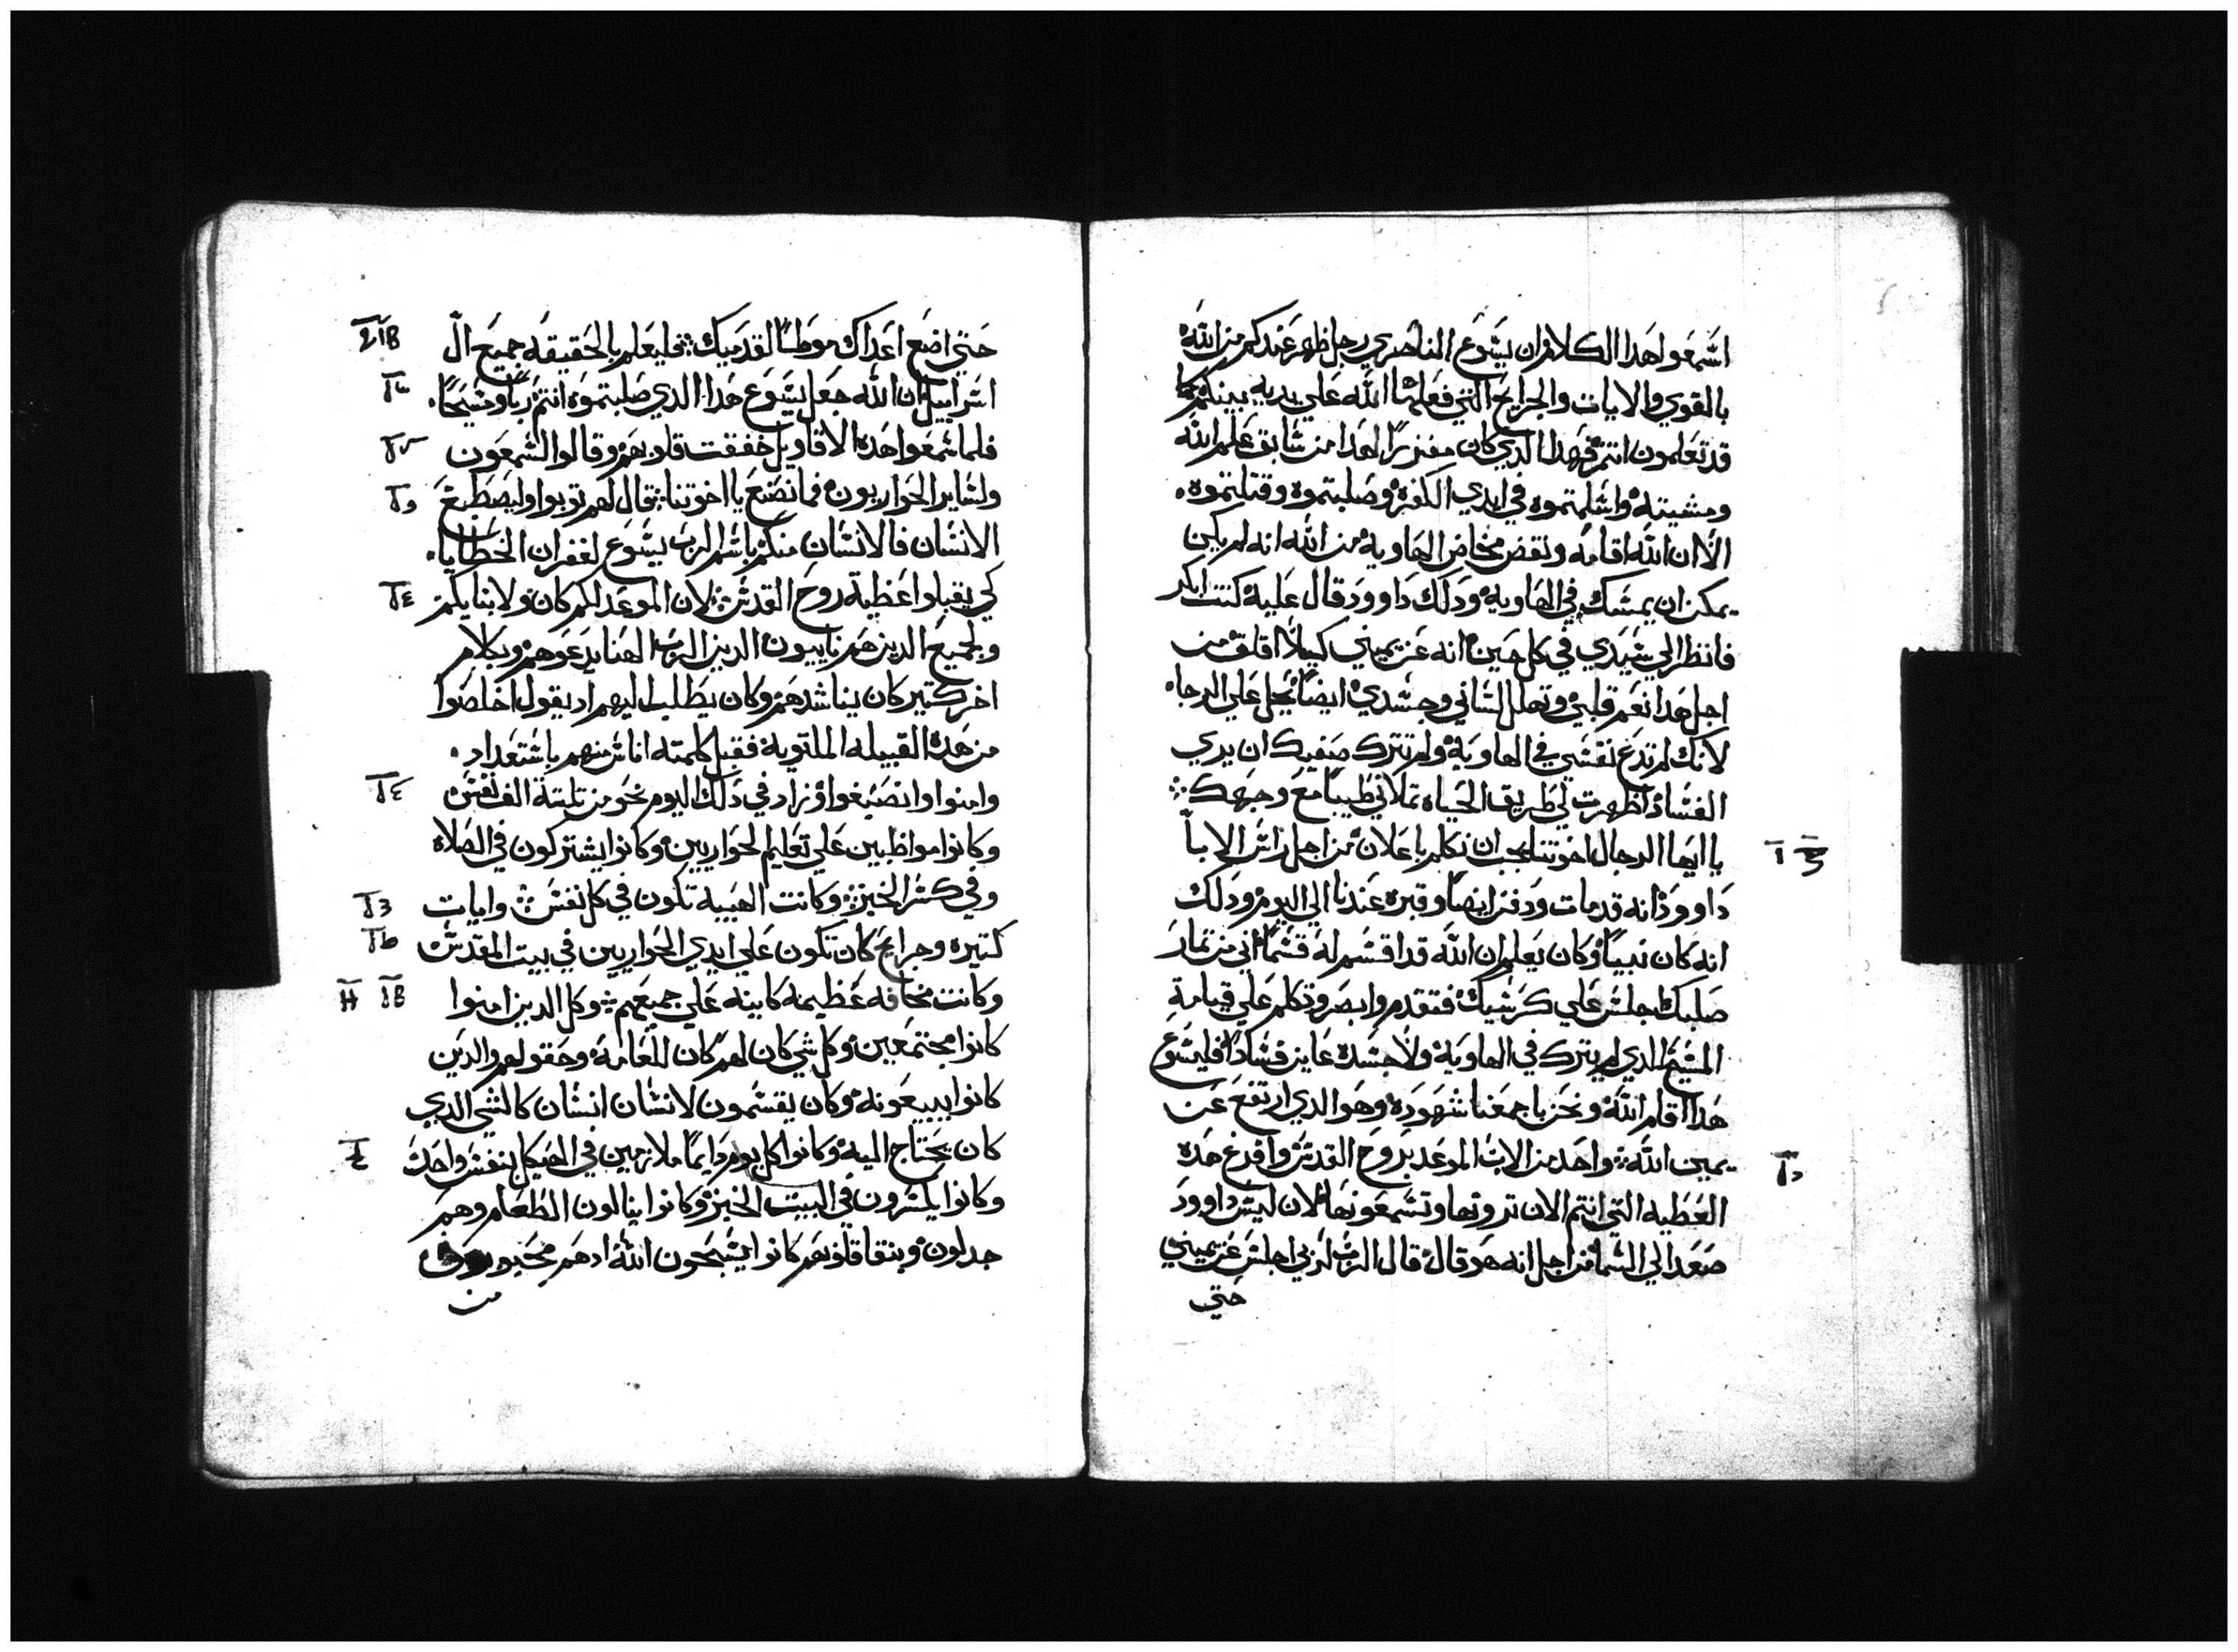 اسمعوا هدا الكلام ان يسوع الناصري رجل ظهر عندكم من الله
بالقوي والايات والجرايح التي فعلها الله علي يديه بينكم كما
قد تعلمون انتم فهدا الدي كان مفترزا لهدا من سابق علم الله
ومشيته واسلمتموه في ايدي الكفره وصلبتموه وقتلتموه.
الا ان الله اقامه ونقض مخاض الهاويه من الله انه لم يكن
يمكن ان يمسك في الهاويه ودلك داوود قال عليه كنت ابكر
فانظر الي سيدي في كل حين انه عن يميني كيلا اقلق من
اجل هدا نعم قلبي وتهلل لساني وجسدي ايضا يحل علي الرجاء
لانك لم تدع نفسي في الهاويه ولم تترك صفيك ان يري
الفساد اظهرت لي طريق الحياه تملاني طيبا مع وجهك
يا ايها الرجال اخوتنا يجب ان نكلم باعلان من اجل راس الابا
داوود انه قد مات ودفن ايضا وقبره عندنا الي اليوم ودلك
انه كان نبيا وكان يعلم ان الله قد اقسم له قسما اني من تمار
صلبك اجلس علي كرسيك فتقدم وابصر وتكلم علي قيامة
المسيح الدي لم يترك في الهاويه ولا جسده عاين فسادا فليسوع
هدا اقام الله ونحن باجمعنا شهوده وهو الدي ارتفع عن
يمين الله واخد من الاب الموعد بروح القدس وافرغ هده
العطيه التي انتم الان تروتها وتسمعونها لان ليس داوود
صعد الي السما من اجل انه هو قال قال الرب لربي اجلس عن يميني
حتي
حتي اضع اعداك موطئا لقدميك فليعلم بالحقيقه جميع ال
اسراييل ان الله جعل يسوع هدا الدي صلبتموه انتم ربا ومسيحا.
فلما سمعوا هده الاقاويل خفقت قلوبهم وقالوا لشمعون
ولساير الحواريون فما نصنع يا اخوتنا قال لهم توبوا وليصطبغ
الانسان فالانسان منكم باسم الرب يسوع لغفران الخطايا.
كي يقبلوا عطية روح القدس لان الموعد لكم كان ولابنايكم
ولجميع الدين هم ناييون الدين الرب الهنا يدعوهم وبكلام
اخر كتير كان يناشدهم وكان يطلب اليهم اد يقول اخلصوا
من هده القبيله الملتويه فقبل كلمته اناس منهم باستعداد.
وامنوا وانصبغوا وزاد في دلك اليوم نحو من تلتة الف نفس
وكانوا مواظبين علي تعليم الحواريين وكانوا يشتركون في الصلاه
وفي كسر الخبز وكانت الهيبه تكون في كل نفس وايات
كتيره وجرايح كان تكون علي ايدي الحواريين في بيت المقدس
وكانت مخافه عظيمه كاينه علي جميعهم وكل الدين امنوا
كانوا مجتمعين وكل شي كان لهم كان للعامه وحقولهم والدين
كانوا يبيعونه وكان يقسمون لانسان انسان كالشي الدي
كان يحتاج اليه وكانوا كل يوم دايما ملازمين في الهيكل بنفس واحده
وكانوا يكسرون في البيت الخبز وكانوا ينالون الطعام وهم
جدلون وبنقا قلوبهم كانوا يسبحون الله ادهم محبوبون
من